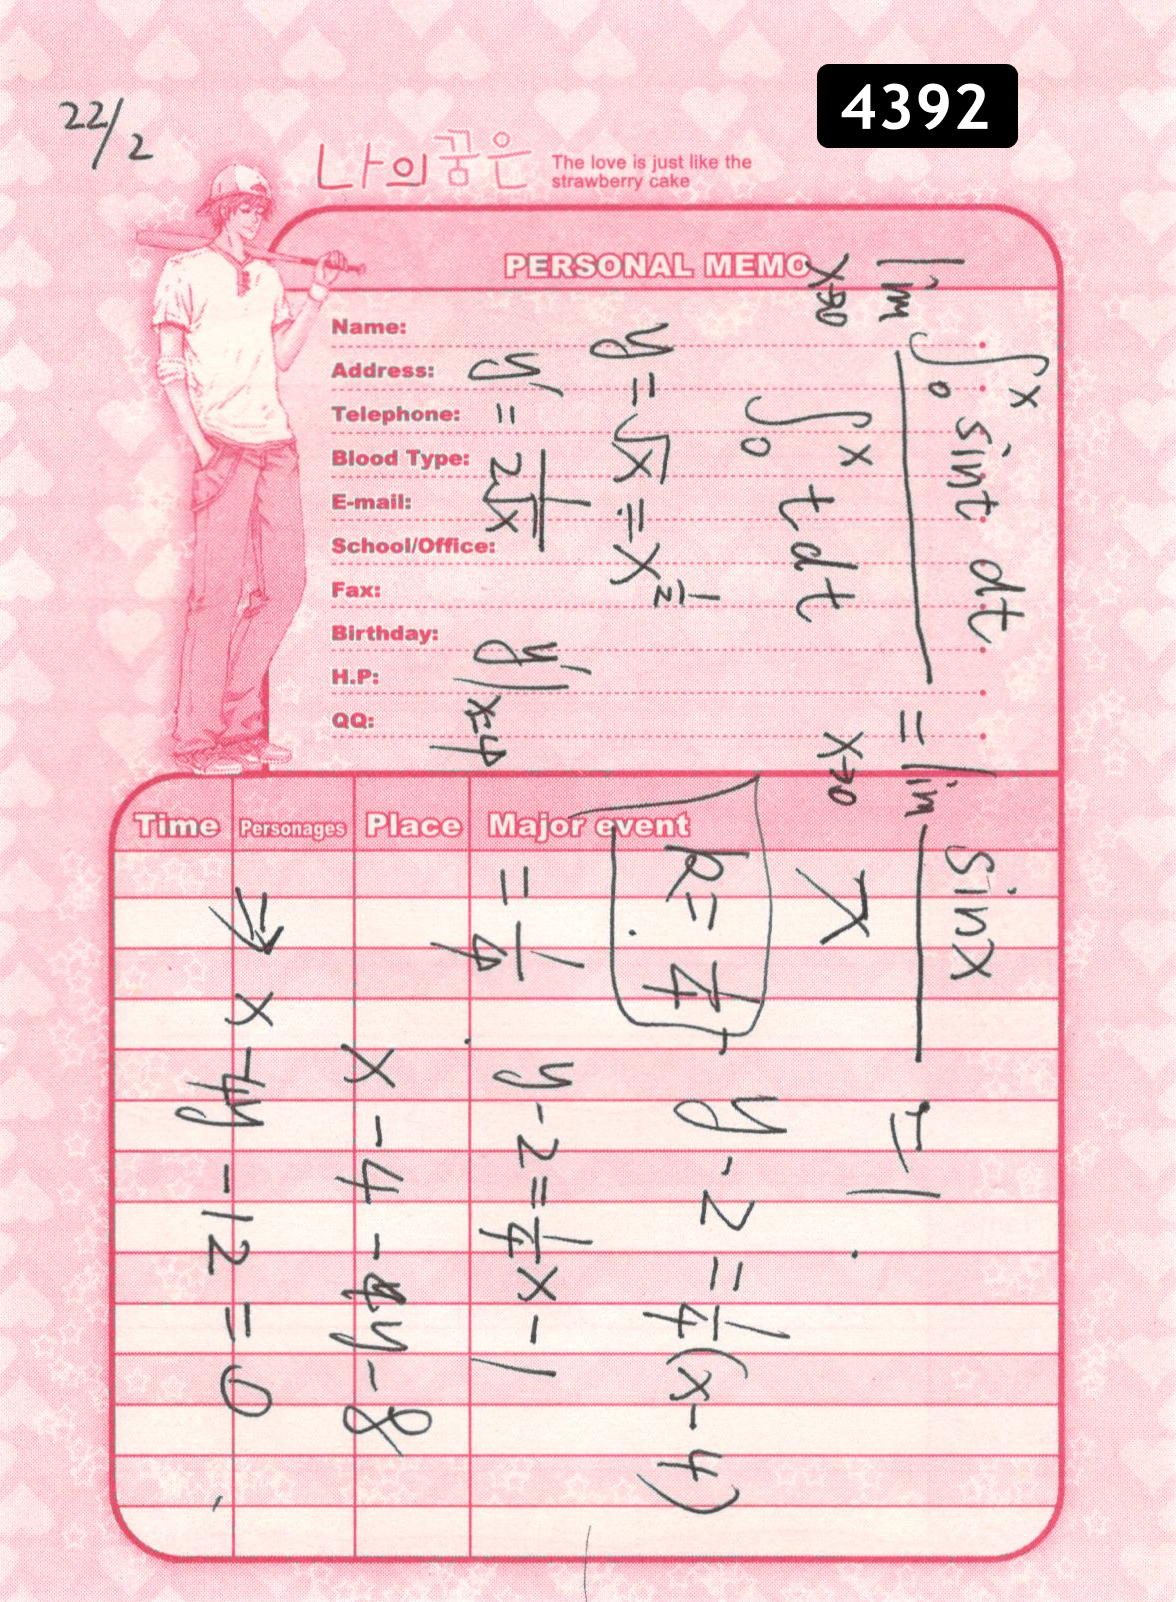 4392
22/2
나의꿈은
The love is just like the
strawberry cake
PERSONAL MEMO
Name:
Address:
Telephone:
Blood Type:
E-mail:
School/Office:
Fax:
Birthday:
H.P:
QQ:
Time Personages Place Major event
lim x→0 ∫₀ˣ sint dt / ∫₀ˣ t dt = lim x→0 sinx / x = 1.
y = √x = x^½
k = ¼, y - 2 = ¼(x - 4)
y' = 1/2√x y'|x=4 = ¼. y - 2 = ¼x - 1
x - 4 - 4y - 8
⇒ x - 4y - 12 = 0